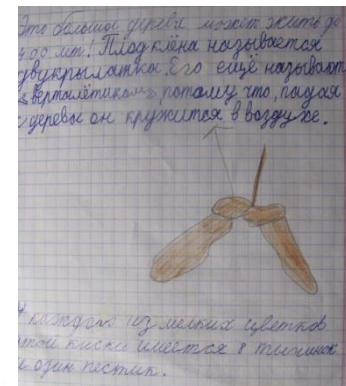 Это большое дерево может жить до
400 лет! Плод клёна называется
двукрылатка. Его ещё называют
«вертолётиком», потому что, падая
с дерева он кружится в воздухе.
У каждого из мелких цветков
этой киски имеется 8 тычинок
и один пестик.